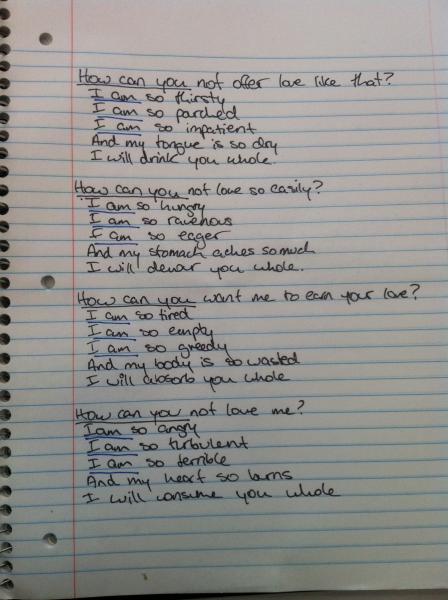 How can you not offer love like that?
I am so thirsty
I am so parched
I am so impatient
And my tongue is so dry
I will drink you whole.
How can you not love so easily?
I am so hungry
I am so ravenous
I am so eager
And my stomach aches so much
I will devour you whole.
How can you want me to earn your love?
I am so tired
I am so empty
I am so greedy
And my body is so wasted
I will absorb you whole
How can you not love me?
I am so angry
I am so turbulent
I am so terrible
And my heart so burns
I will consume you whole